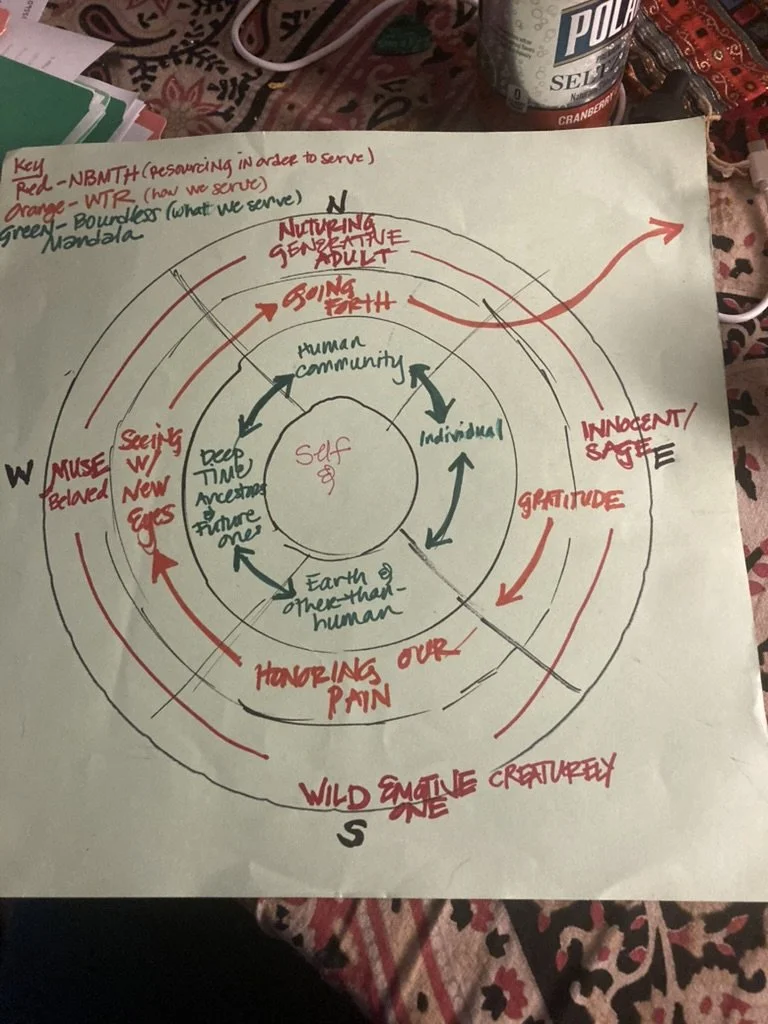 POLA
SELT
Natur
0
CRANBERRY
Key
Red - NBMTH (resourcing in order to serve)
Orange - WTR (how we serve)
Green - Boundless (what we serve)
Mandala
N
NUTURING
GENERATIVE
ADULT
GOING
FORTH
Human
community
Individual
INNOCENT/
SAGE
E
GRATITUDE
Self
&
Deep
TIME
Ancestors
&
Future
ones
Seeing
w/
New
Eyes
W
MUSE
Beloved
Earth &
other-than-
human
HONORING OUR
PAIN
WILD EMOTIVE CREATURELY
ONE
S